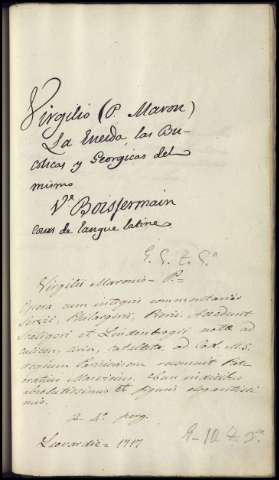 Virgilio (P. Maron)
La Eneida las Bu-
colicas y Georgicas del
mismo
Va Boisfermain
cours de langue latine
G. G. Z. Gª
Virgilii Maronis = P=
Opera cum integris commentariis
Servii, Philargirii, Pierii Accedunt
Scaligeri et Lindenbrogii notæ ad
culicem, Cirin, Catalecta, ad Cod. MS.
regium Parisiensem recensuit Pan-
cratius Masvicius, cum indicibus
absolutissimis et figuris elegantissi-
mis.
2. 4º perg.
Leovardiæ = 1717